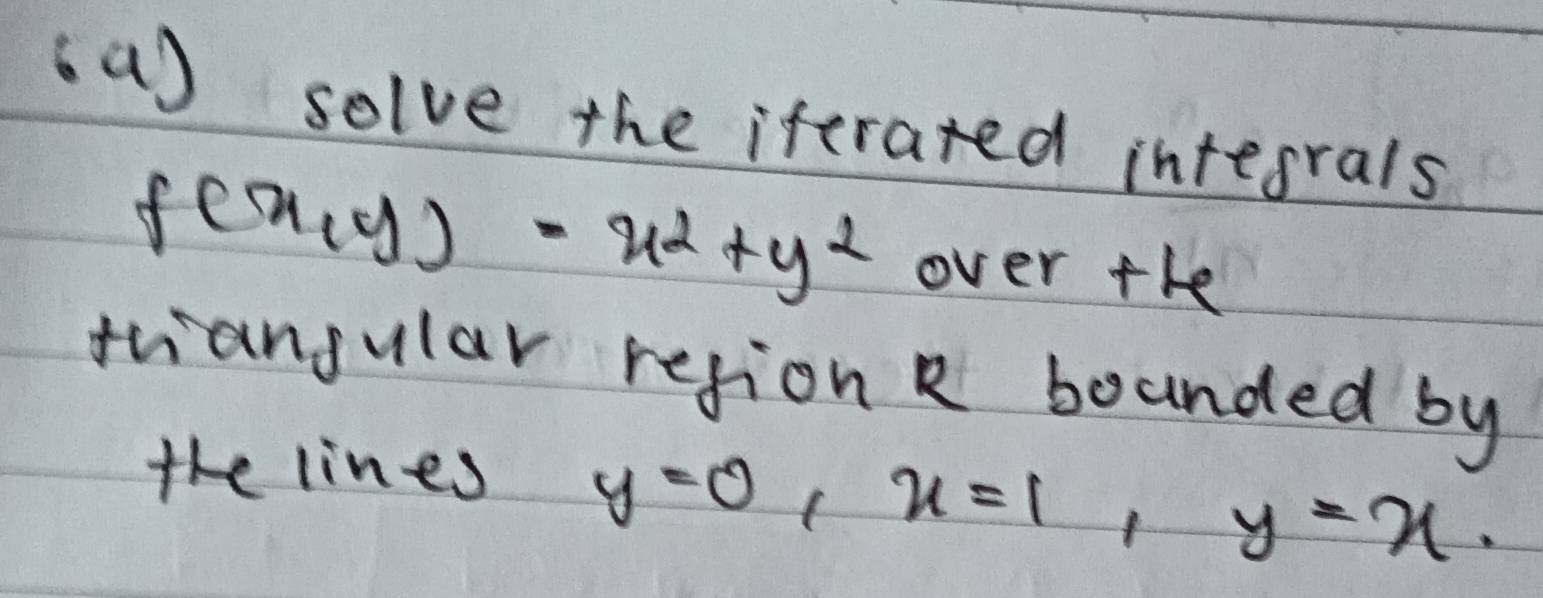 6a) solve the iterated integrals
f(x,y) = x² + y² over the
triangular region R bounded by
the lines y=0, x=1, y=x.